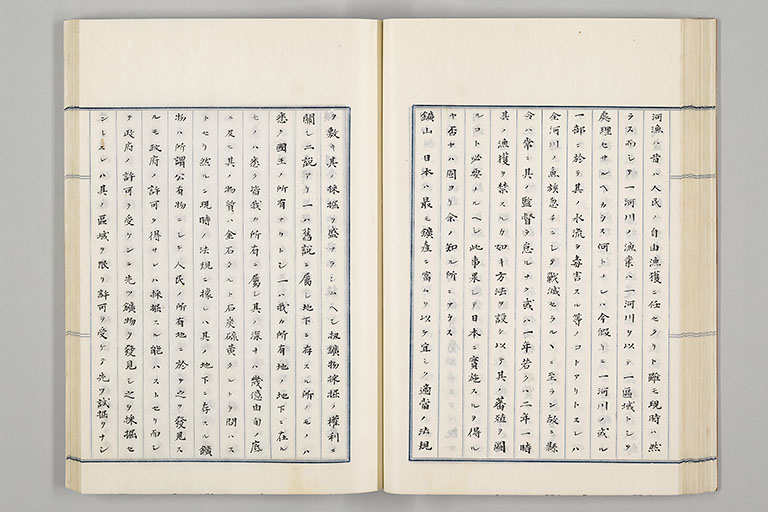 河漁ハ昔ハ人民ノ自由漁獲ニ任セタリト雖モ現時ハ然
ラス而シテ一河川ノ漁業ハ一河川ヲ以テ一區域トシテ
處理セサルヘカラス何トナレハ今假リニ一河川ノ或ル
一部ニ於テ其ノ水流ヲ毒害スル等ノコトアリトスレハ
全河川ノ魚族忽チニシテ戰滅セラルヽニ至ラン故ニ縣
令ハ常ニ其ノ監督ヲ怠ルナク或ハ一年若クハ二年一時
其ノ漁獲ヲ禁スルカ如キ方法ヲ設ケ以テ其ノ蕃殖ヲ圖
ルコト必要ナルヘシ此事果シテ日本ニ實施スルヲ得ル
ヤ否ヤハ固ヨリ余ノ知ル所ニアラス
鑛山 日本ハ最モ鑛産ニ富ムヲ以テ宜シク適當ノ法規
ヲ敷キ其ノ採掘ヲ盛ナラシムヘシ抑鑛物採掘ノ權利ニ
關シ二説アリ一ハ舊説ニ屬シ地下ニ存スル所ノモノハ
悉ク國王ノ所有ナリトシ一ハ我カ所有地ノ地下ニ在ル
モノハ悉ク皆我カ所有ニ屬シ其ノ深サハ幾億由旬ノ底
ニ及ヒ其ノ物質ハ金石タルト石炭硫黄タルトヲ問ハス
トセリ然ルニ現時ノ法規ニ據レハ其ノ地下ニ存スル鑛
物ハ所謂公有物ニシテ人民ノ所有地ニ於テ之ヲ發見ス
ルモ政府ノ許可ヲ得サレハ採掘スル能ハストセリ而シ
テ政府ノ許可ヲ受ケンニハ先ツ鑛物ヲ發見シ之ヲ採掘セ
ントスレハ其ノ區域ヲ限リ許可ヲ受ケテ先ツ試掘ヲナシ